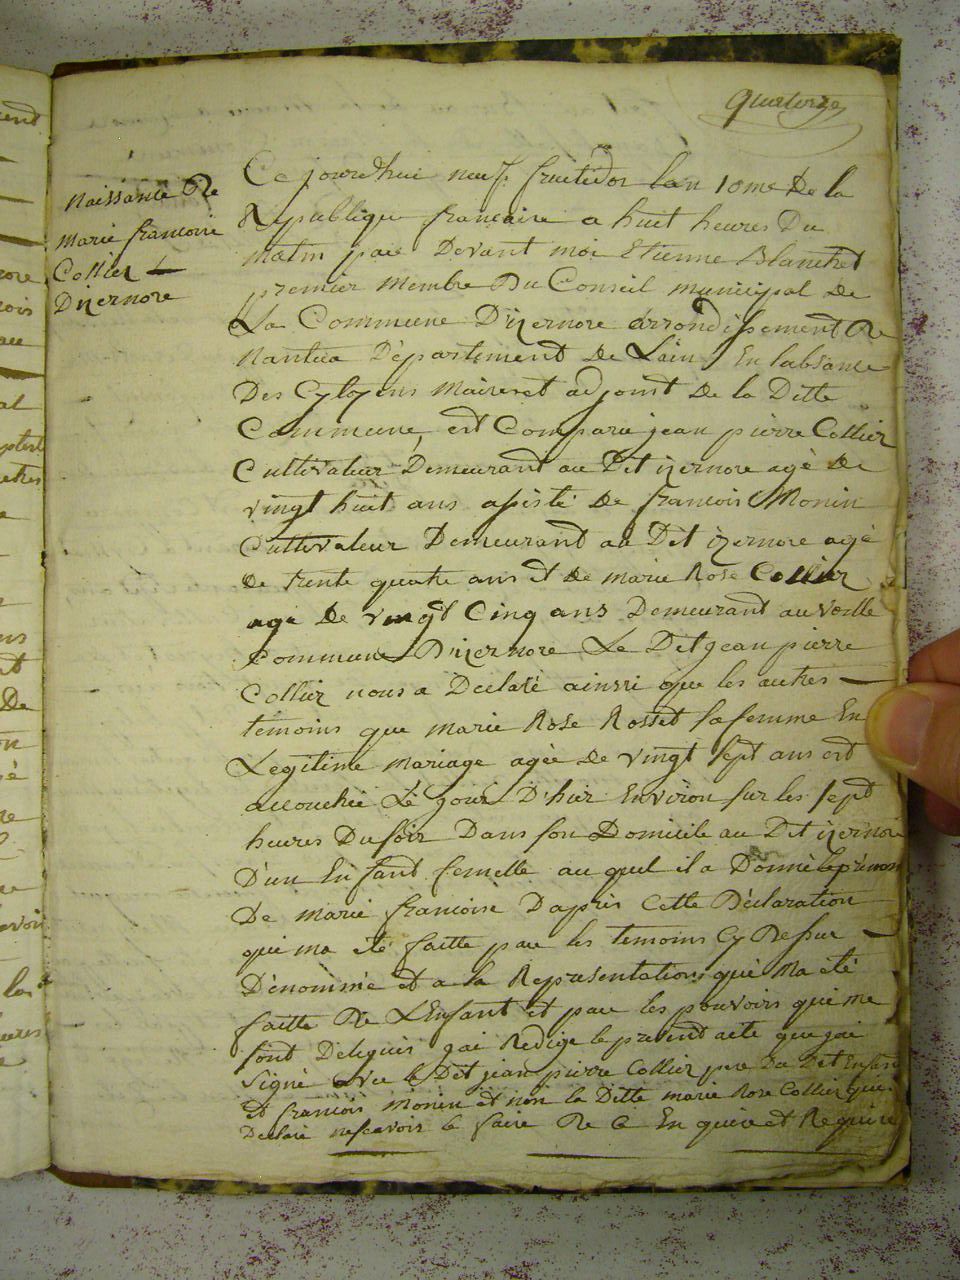 quatorze
Naissance De
marie francoise
Collier
D'izernore
Ce jourd'hui neuf fructidor lan 10me De la
Republique francaise a huit heures Du
matin par Devant moi Etienne Blanchet
premier membre Du Conseil municipal de
La Commune D'izernore arrondissement De
Nantua Département De Lain En labsance
Des Cytoyens Maire et adjoint De la Ditte
Commune, est Comparu jean pierre Collier
Cultivateur Demeurant au Dit izernore agé De
vingt huit ans assisté De francois Monin
Cultivateur Demeurant au Dit izernore agé
de trente quatre ans et De marie Rose Collier
agé De vingt Cinq ans Demeurant au
Commune D'izernore, Le Dit jean pierre
Collier nous a Declaré ainsi que les autres
temoins que marie Rose Rosset sa femme En
Legitime mariage agée De vingt sept ans est
accouchée Le jour D'hier Environ sur les sept
heures Du soir Dans son Domicile au Dit izernore
D'un Enfant femelle au quel il a Donné le prenom
De marie francoise Daprés Cette Déclaration
qui ma été faitte par les temoins Cy Dessur
Dénommé et a la Representation qui Ma été
faitte De LEnfant et par les pouvoirs qui me
sont Delegués jai Redigé le present acte que jai
Signé avec le Dit jean pierre Collier pere Du Dit Enfant
et francois Monin et non la Ditte marie Rose Collier que
Declaré ne scavoir le faire De Ce Enquise et Requise